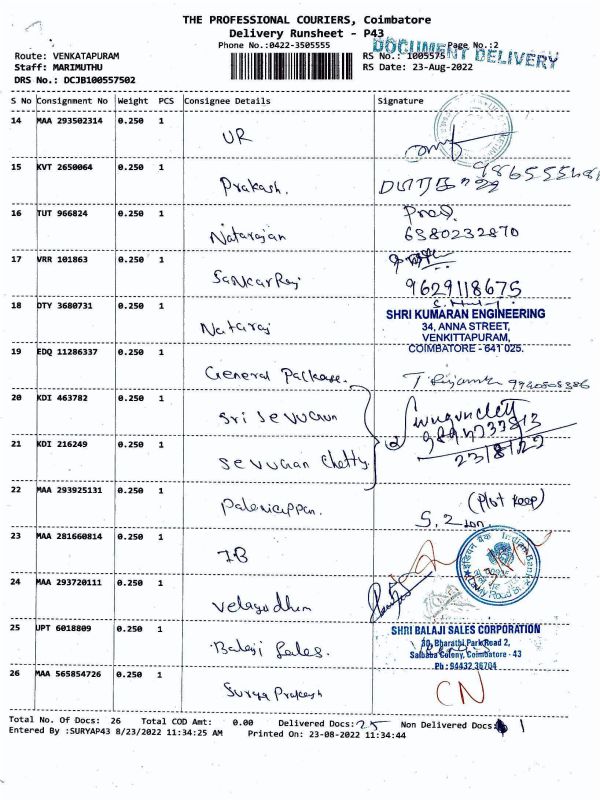 THE PROFESSIONAL COURIERS, Coimbatore
Delivery Runsheet - P43
Phone No.:0422-3505555 Page No.:2
DOCUMENT DELIVERY
Route: VENKATAPURAM RS No.: 1005575
Staff: MARIMUTHU RS Date: 23-Aug-2022
DRS No.: DCJB100557502
S No Consignment No Weight PCS Consignee Details Signature
14 MAA 293502314 0.250 1
UR
15 KVT 2650064 0.250 1
Prakash.
16 TUT 966824 0.250 1
Natarajan 6380232870
17 VRR 101863 0.250 1
SankarRaj 9629118675
18 DTY 3680731 0.250 1 SHRI KUMARAN ENGINEERING
34, ANNA STREET,
Nataraj VENKITTAPURAM,
19 EDQ 11286337 0.250 1 COIMBATORE - 641 025.
General Package.
20 KDI 463782 0.250 1
Sri Sevugan
21 KDI 216249 0.250 1
Sevugan Chetty 23/8/22
22 MAA 293925131 0.250 1
Palaniappan. (Plot Keep)
23 MAA 281660814 0.250 1
IB
24 MAA 293720111 0.250 1
Velayudham
25 UPT 6018809 0.250 1 SHRI BALAJI SALES CORPORATION
30, Bharathi Park Road 2,
Balaji Sales. Saibaba Colony, Coimbatore - 43
Ph : 94432 36704
26 MAA 565854726 0.250 1
Surya Prakash CN
Total No. Of Docs: 26 Total COD Amt: 0.00 Delivered Docs: 25 Non Delivered Docs: 1
Entered By :SURYAP43 8/23/2022 11:34:25 AM Printed On: 23-08-2022 11:34:44